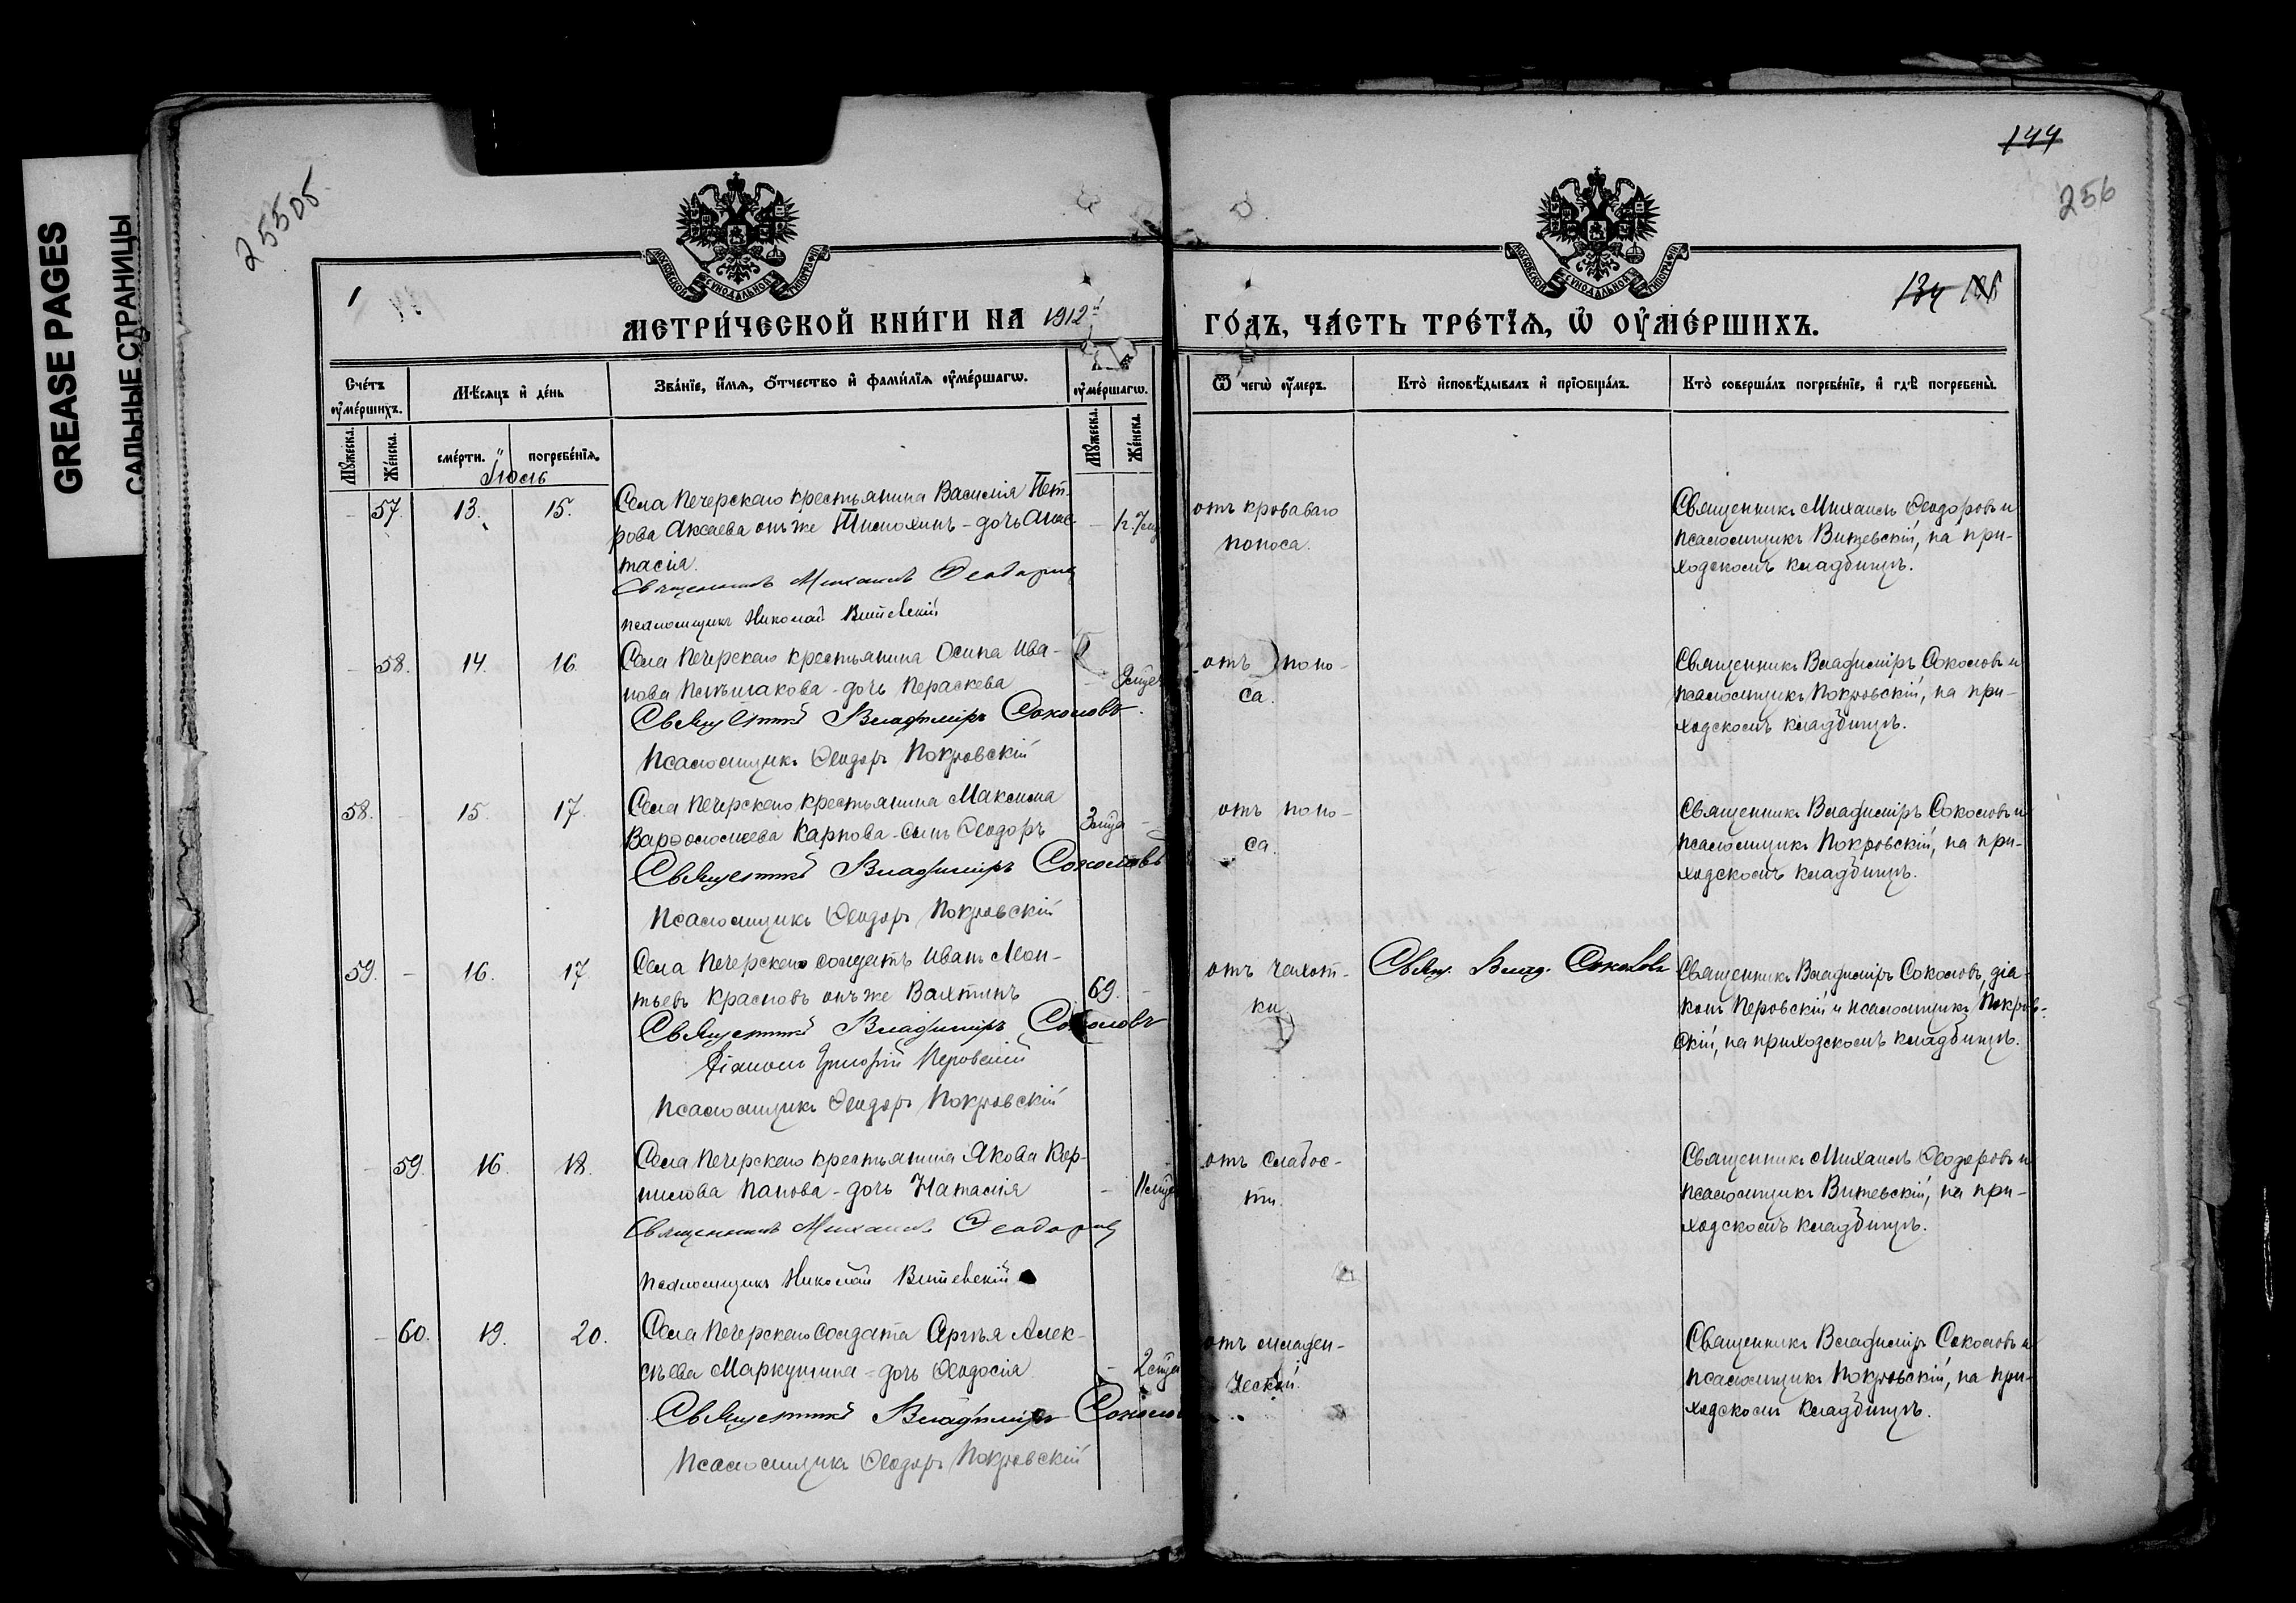 GREASE PAGES
САЛЬНЫЕ СТРАНИЦЫ
255об
144
256
МОСКОВСКОЙ СѴНОДАЛЬНОЙ ТИПОГРАФІИ
МОСКОВСКОЙ СѴНОДАЛЬНОЙ ТИПОГРАФІИ
1
134
МЕТРИ́ЧЕСКОЙ КНИ́ГИ НА 1912 й
ГО́ДЪ, ЧА́СТЬ ТРЕ́ТЇѦ, Ѡ҆ ОУ҆МЕ́РШИХЪ.
Сче́тъ оу҆ме́ршихъ.
Мѣ́сяцъ и҆ де́нь
Зва́нїе, и҆́мѧ, ѻ҆́тчество и҆ фами́лїѧ оу҆ме́ршагѡ.
оу҆ме́ршагѡ.
Ѿ чегѡ̀ оу҆́меръ.
Кто̀ и҆сповѣ́дывалъ и҆ прїѡбща́лъ.
Кто̀ соверша́лъ погребе́нїе, и҆ гдѣ̀ погребены̀.
Мꙋ́жеска.
Же́нска.
сме́рти.
погребе́нїѧ.
Мꙋ́жеска.
Же́нска.
Іюль
– 57. 13. 15.
Села Печерскаго крестьянина Василія Пет-
рова Аксаева онъ же Тимохинъ - дочь Анас-
тасія.
Священникъ Михаилъ Ѳеодоровъ
псаломщикъ Николай Витевскій
–
отъ кроваваго
поноса.
Священникъ Михаилъ Ѳеодоровъ и
псаломщикъ Витевскій, на при-
ходскомъ кладбищѣ.
– 58. 14. 16.
Села Печерскаго крестьянина Осипа Ива-
нова - дочь Параскева
Священникъ Владиміръ Соколовъ.
Псаломщикъ Ѳеодоръ Покровскій
отъ поно-
са.
Священникъ Владиміръ Соколовъ и
псаломщикъ Покровскій, на при-
ходскомъ кладбищѣ.
58. – 15. 17.
Села Печерскаго крестьянина Максима
Варѳоломеева Карпова - сынъ Ѳеодоръ
Священникъ Владиміръ Соколовъ
Псаломщикъ Ѳеодоръ Покровскій
3 мѣся –
отъ поно-
са.
Священникъ Владиміръ Соколовъ и
псаломщикъ Покровскій, на при-
ходскомъ кладбищѣ.
59. – 16. 17.
Села Печерскаго солдатъ Иванъ Леон-
тьевъ Красновъ онъ же Вахтинъ
Священникъ Владиміръ Соколовъ
Діаконъ Григорій Перовскій
Псаломщикъ Ѳеодоръ Покровскій
69. –
отъ чахот-
ки
Свящ. Влад. Соколовъ
Священникъ Владиміръ Соколовъ, діа-
конъ Перовскій и псаломщикъ Покров-
скій, на приходскомъ кладбищѣ.
– 59. 16. 18.
Села Печерскаго крестьянина Якова Кор-
нилова Панова - дочь Наталія
Священникъ Михаилъ Ѳеодоровъ
псаломщикъ Николай Витевскій
– 11 мѣся
отъ слабос-
ти.
Священникъ Михаилъ Ѳеодоровъ и
псаломщикъ Витевскій, на при-
ходскомъ кладбищѣ.
– 60. 19. 20.
Села Печерскаго солдата Сергѣя Алек-
сѣева Маркушина - дочь Ѳеодосія
Священникъ Владиміръ Соколов
Псаломщикъ Ѳеодоръ Покровскій
– 2 мѣся
отъ младен-
ческой.
Священникъ Владиміръ Соколовъ и
псаломщикъ Покровскій, на при-
ходскомъ кладбищѣ.